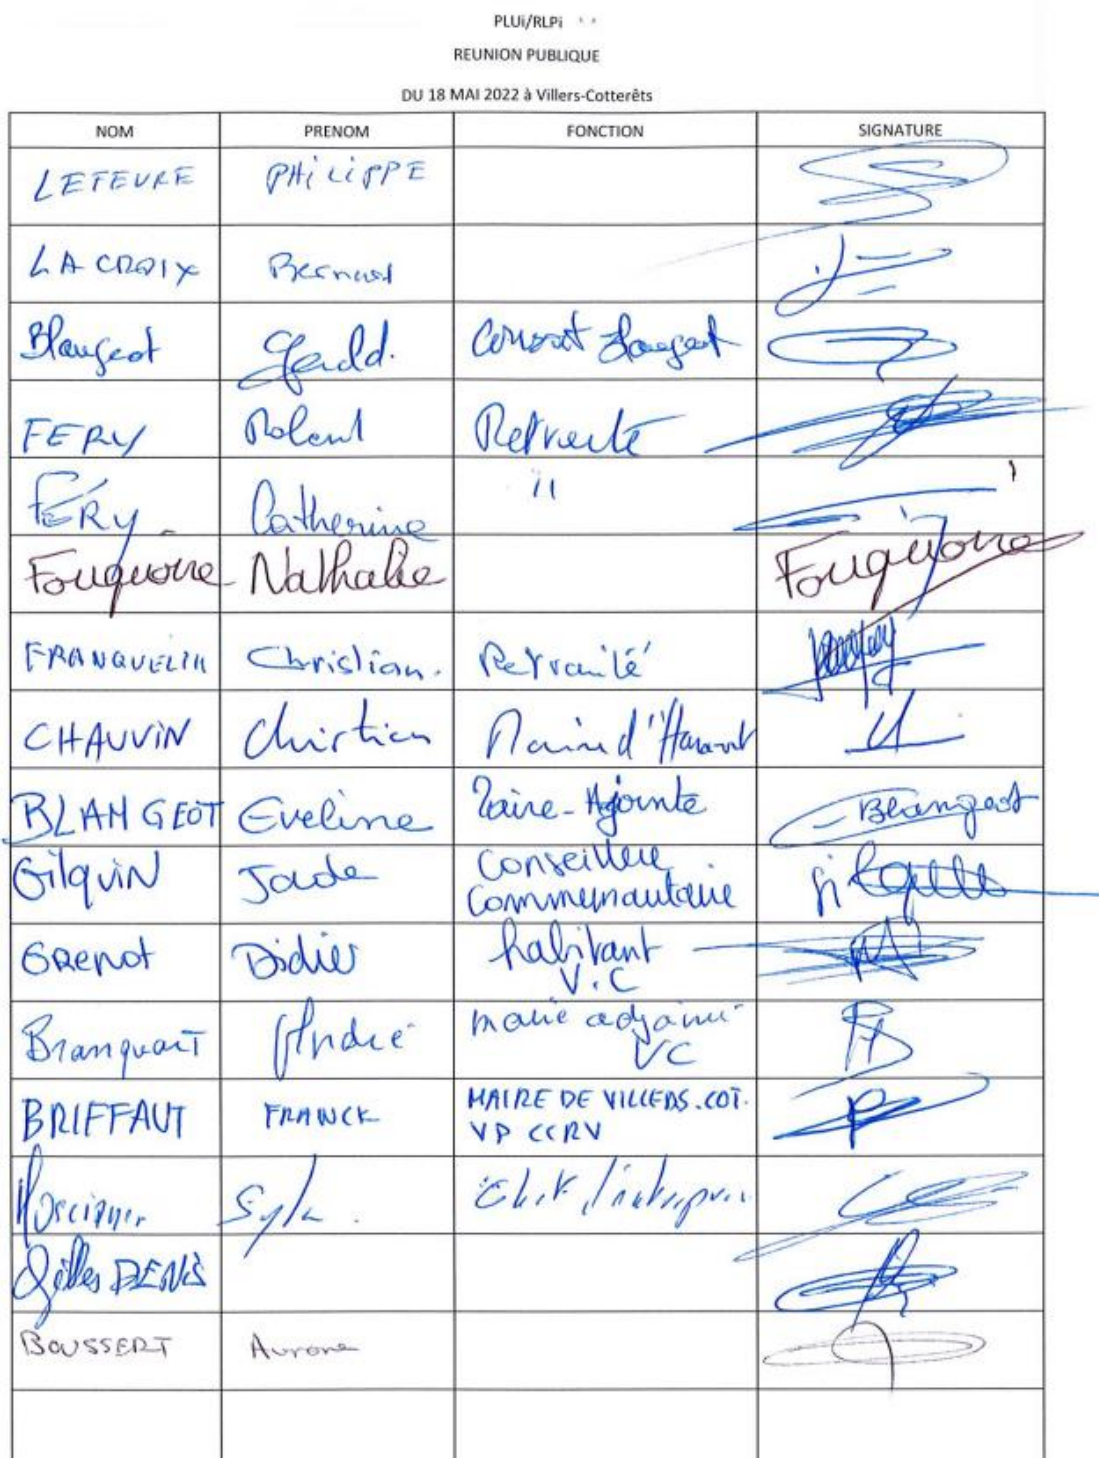 PLUi/RLPi
REUNION PUBLIQUE
DU 18 MAI 2022 à Villers-Cotterêts
NOM PRENOM FONCTION SIGNATURE
LEFEVRE PHILIPPE
LACROIX Bernard
Blangeot Gérald.
FERY Roland Retraité
FÉRY Catherine "
Fouquoire Nathalie Fouquoire
FRANQUELIN Christian. Retraité
CHAUVIN Christian
BLANGEOT Eveline Maire-Ajointe Blangeot
Gilquin Jade Conseillère
Communautaire
Grenot Didier habitant
V.C
Branquart André maire adjoint
VC
BRIFFAUT FRANCK MAIRE DE VILLERS.COT.
VP CCRV
Gilles DENIS
BOUSSERT Aurore